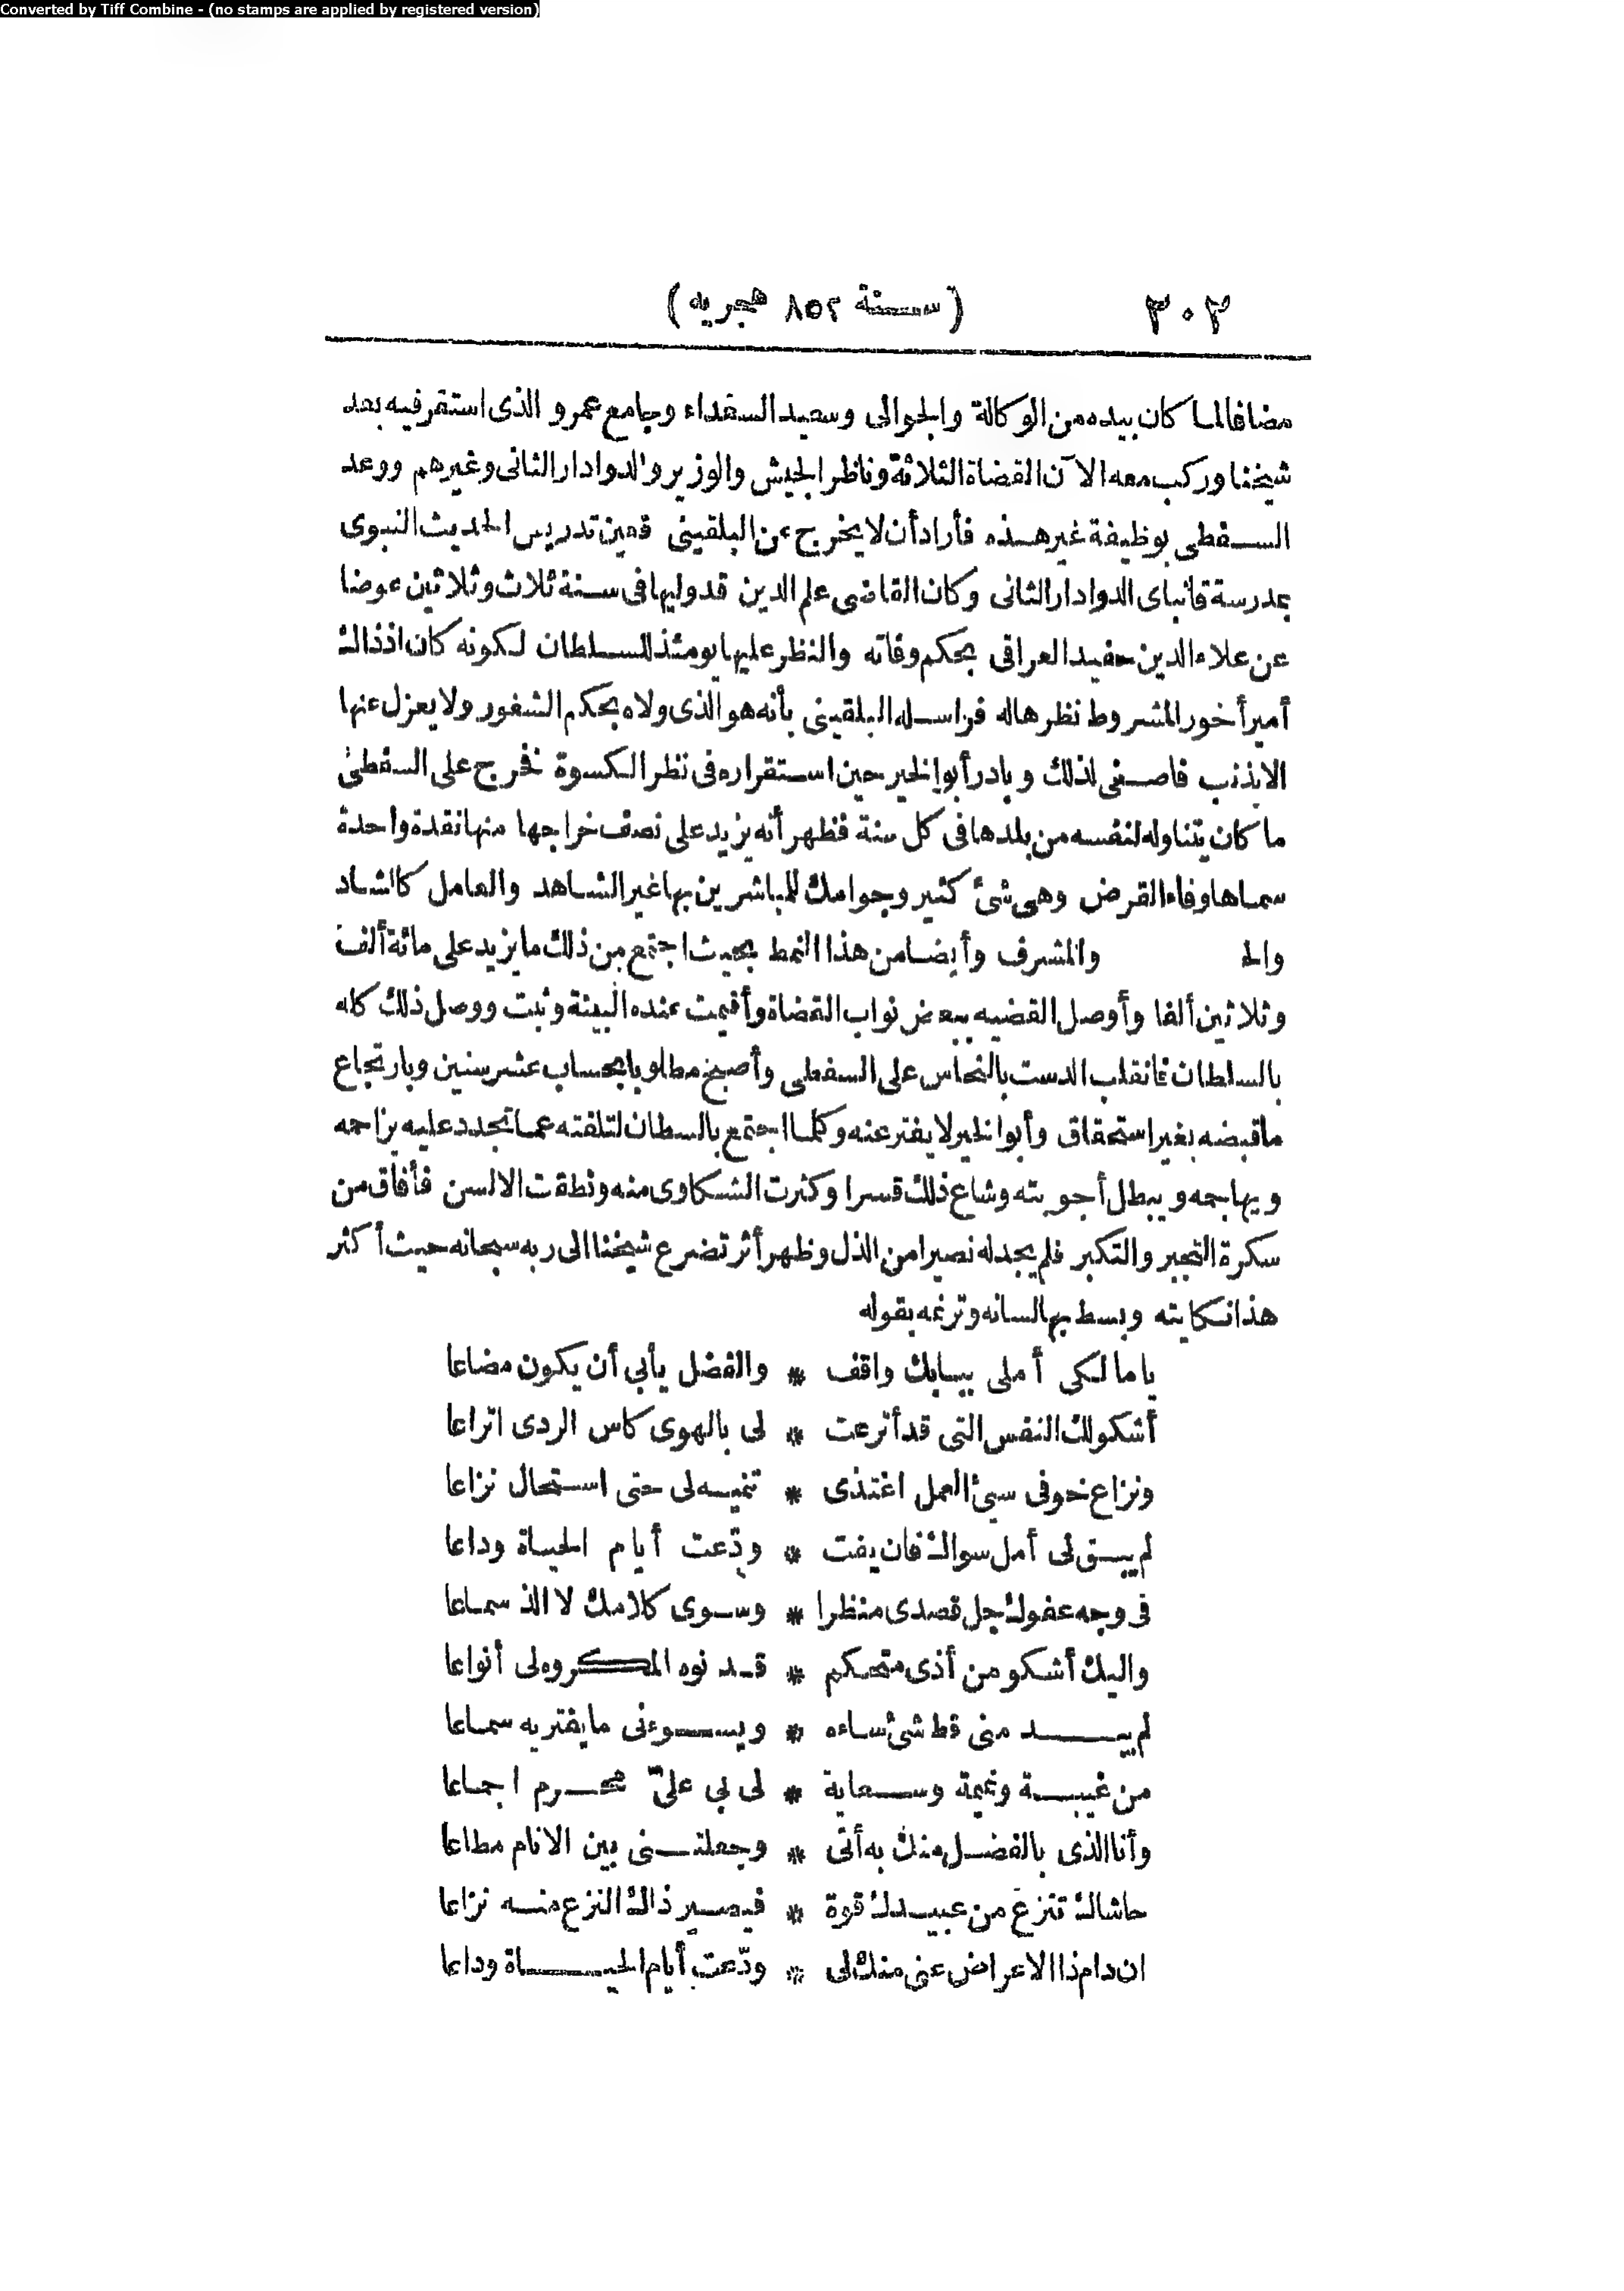 Converted by Tiff Combine - (no stamps are applied by registered version)
٣٠٣ (سنة ٨٥٢ هجريه)
مضافا لما كان بيده من الوكالة والجوالى وسعيد السعداء وجامع عمرو الذى استقر فيه بعد
شيخنا وركب معه الآن القضاة الثلاثة وناظر الجيش والوزير والدوادار الثانى وغيرهم ووعد
السقطى بوظيفة غير هذه فأراد أن لا يخرج عن البلقينى فعين تدريس الحديث النبوى
بمدرسة قانباى الدوادار الثانى وكان القاضى علم الدين قد وليها فى سنة ثلاث وثلاثين عوضا
عن علاء الدين حفيد العراقى بحكم وفاته والنظر عليها يومئذ للسلطان لكونه كان اذ ذاك
أمير أخور المشروط نظرها له فراسله البلقينى بأنه هو الذى ولاه بحكم الشغور ولا يعزل عنها
الا بذنب فاصغى لذلك وبادر أبو الخير حين استقراره فى نظر الكسوة فخرج على السقطى
ما كان يتناوله لنفسه من بلدها فى كل سنة فظهر أنه يزيد على نصف خراجها منها نقدة واحدة
سماها وفاء القرض وهى شئ كثير وجوامك للمباشرين بها غير الشاهد والعامل كالشاد
والـ والمشرف وأيضا من هذا النمط بحيث اجتمع من ذلك ما يزيد على مائة ألف
وثلاثين ألفا وأوصل القضيه ببعض نواب القضاة وأقيمت عنده البينة وثبت ووصل ذلك كله
بالسلطان فانقلب الدست بالنحاس على السفطى وأصبح مطلوبا بحساب عشر سنين وبارتجاع
ما قبضه بغير استحقاق وأبو الخير لا يفتر عنه وكلما اجتمع بالسطان لتلفته عما تجدد عليه يزاحمه
ويهاجمه ويبطل أجوبته وشاع ذلك قسرا وكثرت الشكاوى منه ونطقت الالسن فأفاق من
سكرة التجبر والتكبر فلم يجد له نصيرا من الذل وظهر أثر تضرع شيخنا الى ربه سبحانه حيث أكثر
هذا نكايته وبسط بها لسانه وترنمه بقوله
يا مالكى أملى ببابك واقف * والفضل يأبى أن يكون مضاعا
أشكو لك النفس التى قد أترعت * لى بالهوى كاس الردى اتراعا
ونزاع خوفى سيئ العمل اغتذى * تنميه لى حتى استحال نزاعا
لم يبق لى أمل سواك فان يفت * ودّعت أيام الحياة وداعا
فى وجه عفوك جل قصدى منظرا * وسوى كلامك لا الذ سماعا
واليك أشكو من أذى متحكم * قد نوه المكروه لى أنواعا
لم يبد منى قط شئ ساءه * ويسوءنى ما يفتريه سماعا
من غيبة ونميمة وسعاية * لى بى علىّ محرم اجماعا
وأنا الذى بالفضل منك به أتى * وجعلتنى بين الانام مطاعا
حاشاك تنزع من عبيدك قوة * فيصير ذاك النزع منه نزاعا
ان دام ذا الاعراض عنى منك لى * ودّعت أيام الحياة وداعا